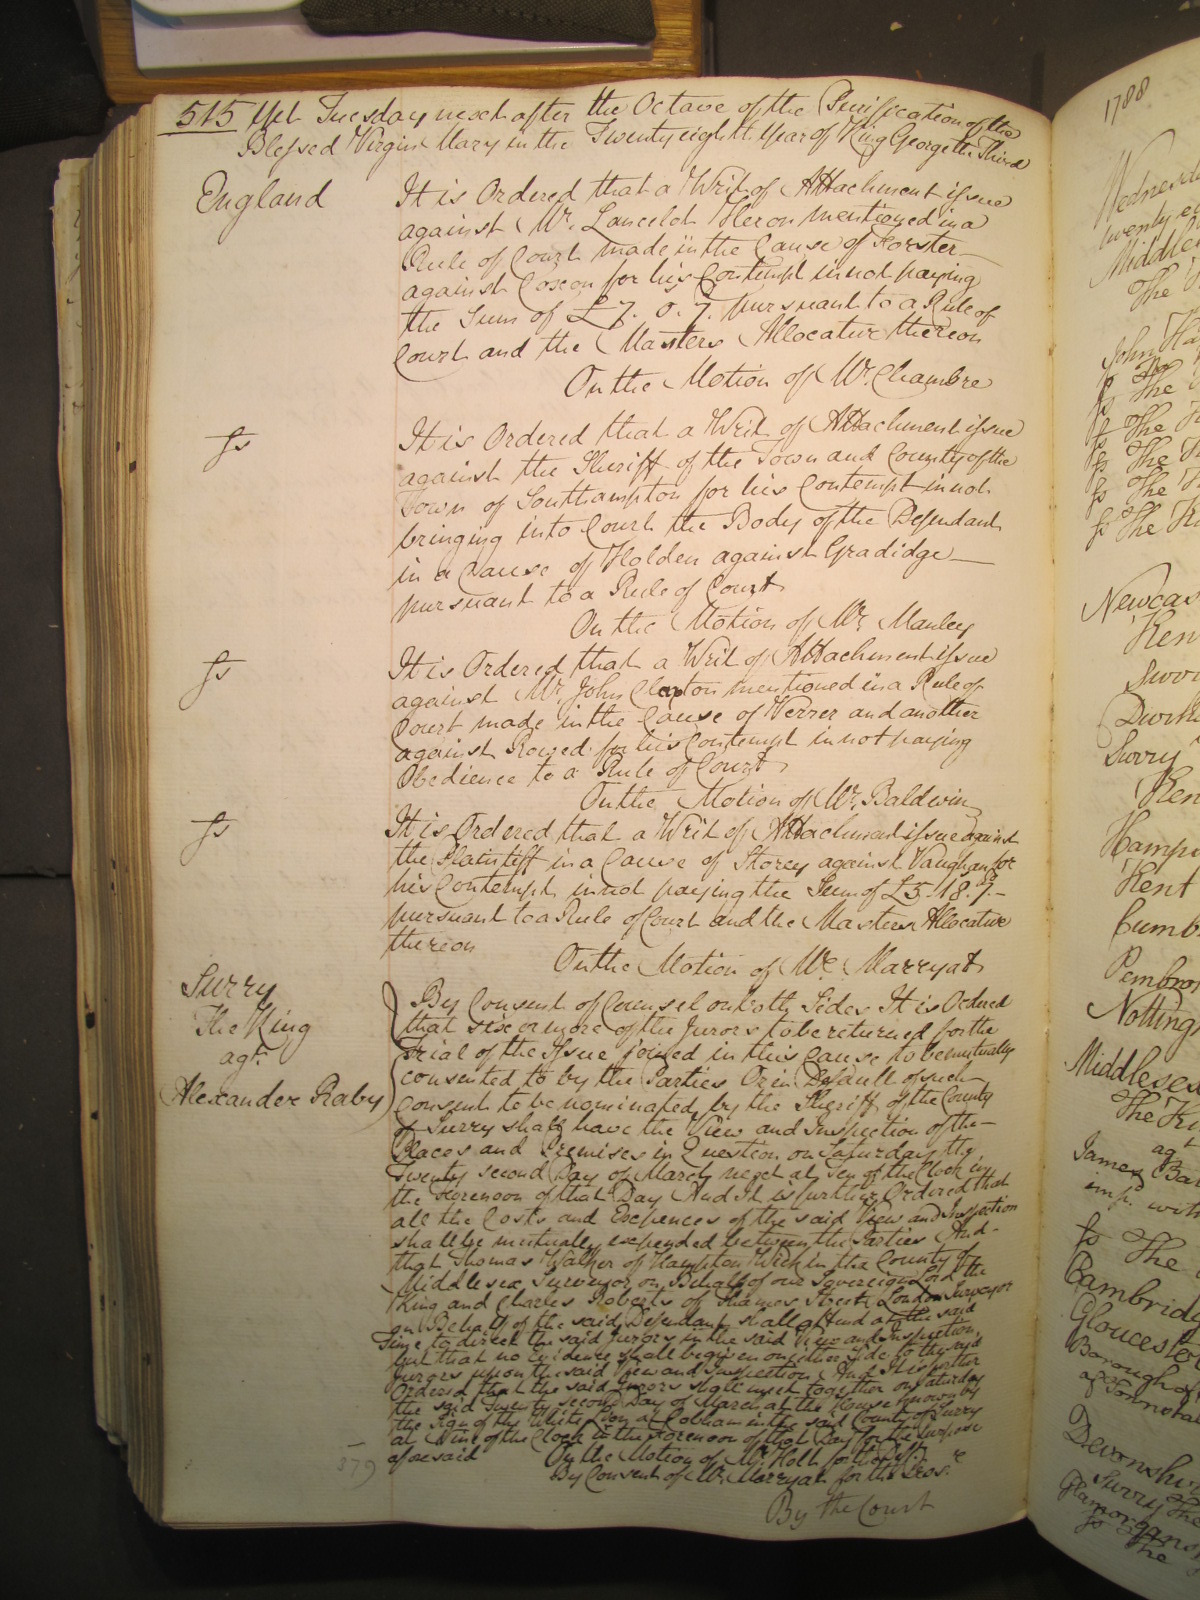 515 Yet Tuesday next after the Octave of the Purification of the
Blessed Virgin Mary in the Twenty eighth Year of King George the Third
England
It is Ordered that a Writ of Attachment issue
against Mr. Lancelot Heron mentioned in a
Rule of Court made in the Cause of Forster
against Coxon for his Contempt in not paying
the Sum of £7. 0. 7. pursuant to a Rule of
Court and the Masters Allocatur thereon
On the Motion of Mr. Chambre
fs
It is Ordered that a Writ of Attachment issue
against the Sheriff of the Town and County of the
Town of Southampton for his Contempt in not
bringing into Court the Body of the Defendant
in a Cause of Holden against Gradidge
pursuant to a Rule of Court
On the Motion of Mr. Manley
fs
It is Ordered that a Writ of Attachment issue
against Mr. John Clapton mentioned in a Rule of
Court made in the Cause of Verrer and another
against Rowed for his Contempt in not paying
Obedience to a Rule of Court
On the Motion of Mr. Baldwin
fs
It is Ordered that a Writ of Attachment issue against
the Plaintiff in a Cause of Storey against Vaughan for
his Contempt in not paying the Sum of £5. 18. 7.
pursuant to a Rule of Court and the Masters Allocatur
thereon
On the Motion of Mr. Marryat
Surry
The King
agt.
Alexander Raby
By Consent of Counsel on both Sides It is Ordered
that six or more of the Jurors to be returned for the
Trial of the Issue joined in this Cause to be mutually
consented to by the Parties Or in Default of such
Consent to be nominated by the Sheriff of the County
of Surry shall have the View and Inspection of the
Places and Premises in Question on Saturday the
Twenty second Day of March next at Ten of the Clock in
the Forenoon of that Day And It is further Ordered that
all the Costs and Expences of the said View and Inspection
shall be mutually expended between the Parties And
that Thomas Walker of Hampton Wick in the County of
Middlesex Surveyor on Behalf of our Sovereign Lord the
King and Charles Roberts of Thames Street London Surveyor
on Behalf of the said Defendant shall attend at the said
Time to direct the said Jurors in the said View and Inspection
but that no Evidence shall be given on either Side to the said
Jurors upon the said View and Inspection And It is further
Ordered that the said Jurors shall meet together on Saturday
the said Twenty second Day of March at the House known by
the Sign of the White Lion at Cobham in the said County of Surry
at Nine of the Clock in the Forenoon of that Day for the Purpose
aforesaid
On the Motion of Mr. Holt for the Deft.
By Consent of Mr. Marryat for the Pros.
By the Court
379
1788
Middle
The
John Ha
fs The
fs The
fs The
fs The
fs The
Newcas
Ken
Surry
Ken
Hamps
Kent
Cumb
Pembro
Notting
Middlesex
The Ki
agt
James Bar
fs The
Cambridg
Glouceste
Borough of
Devonshir
Surry The
Glamorgans
fs The